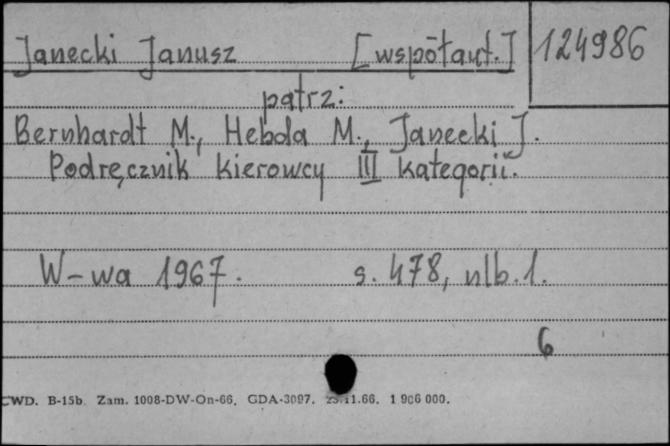 Janecki Janusz [współaut.] 124986
patrz:
Bernhardt M., Hebda M., Janecki J.
Podręcznik kierowcy III kategorii.
W-wa 1967. s. 478, nlb. 1.
6
CWD. B-15b. Zam. 1008-DW-On-66. GDA-3097. 11.66. 1 906 000.